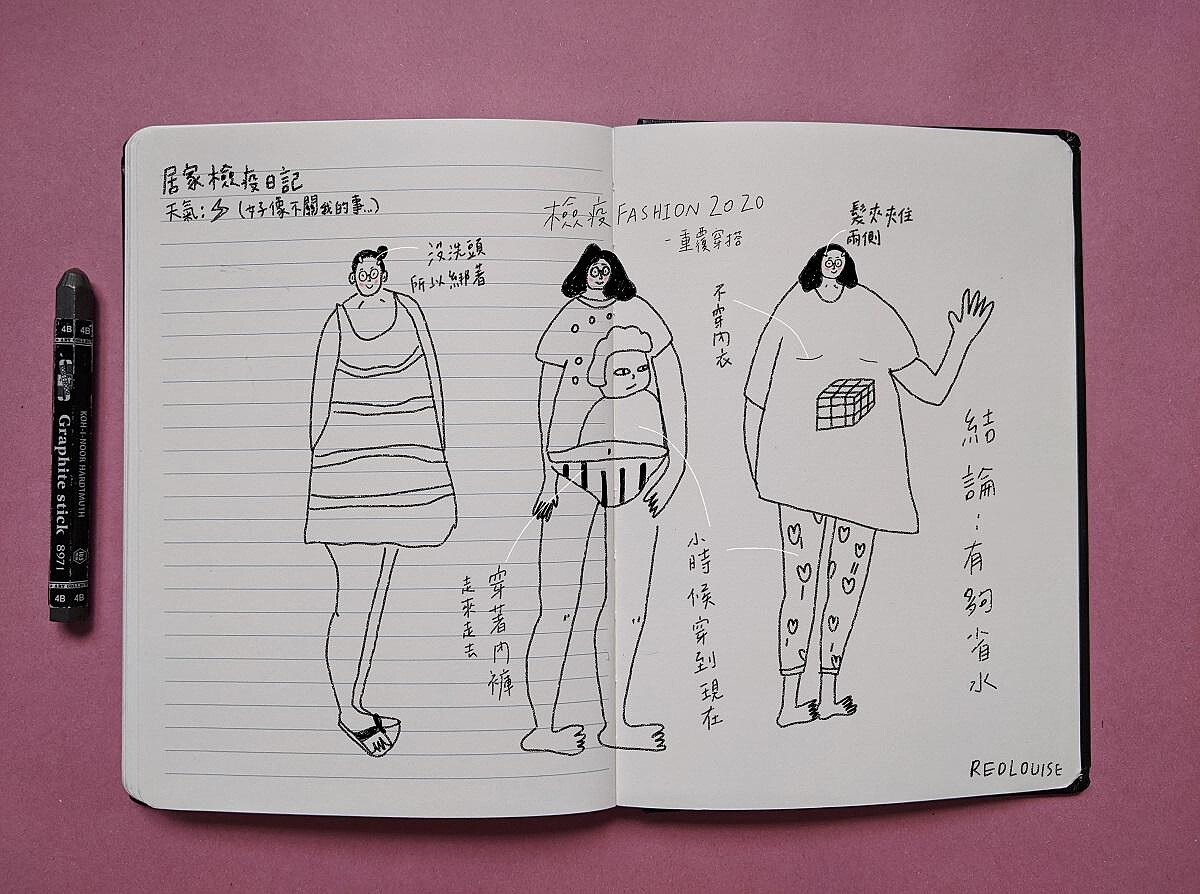 居家檢疫日記
天氣:(好像不關我的事...)
檢疫 FASHION 2020
-重覆穿搭
沒洗頭
所以綁著
髮夾夾住
兩側
不穿內衣
穿著內褲
走來走去
小時候穿到現在
結論:有夠省水
REDLOUISE
4B
4B
KOH-I-NOOR HARDTMUTH
Graphite stick 8971
4B
4B